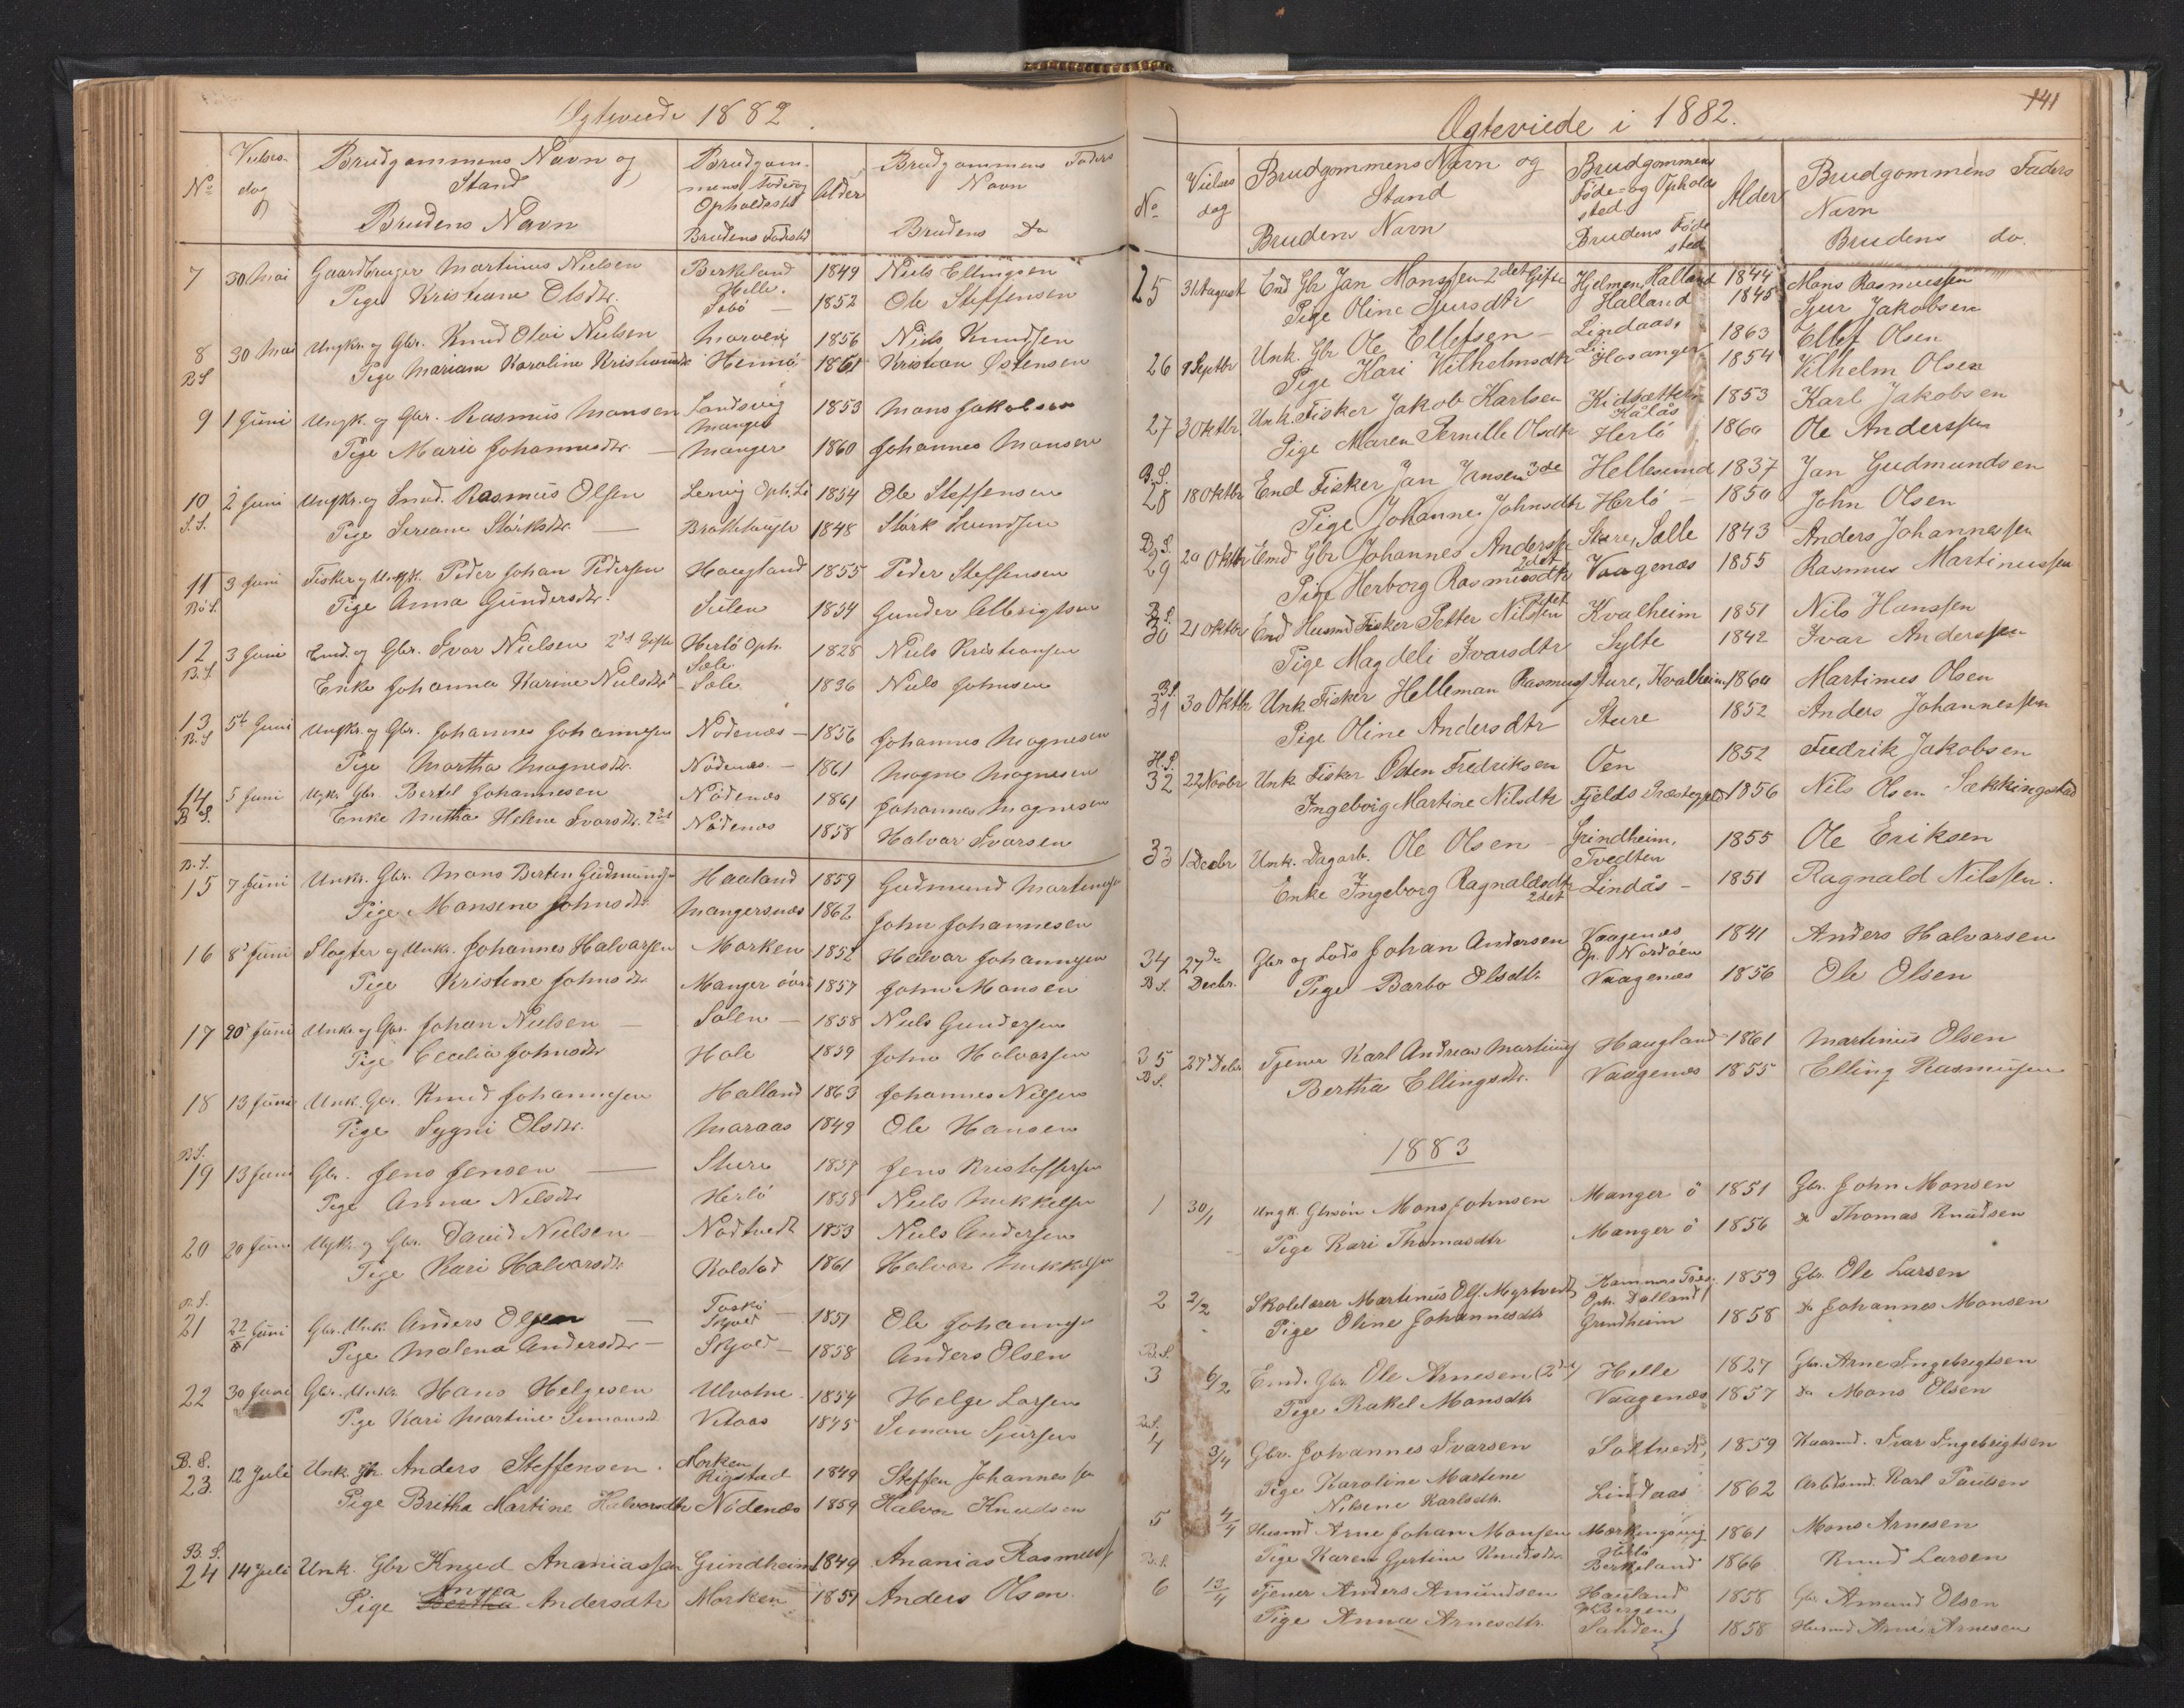 Ægteviede 1882.
No
Vielses-
dag
Brudgommens Navn og
Stand
Brudens Navn
Brudgom-
mens Føde og
Opholdssted
Brudens Fødested
Alder
Brudgommens Faders
Navn
Brudens Do
7 30 Mai Gaardbruger Martinus Nielsen Birkeland 1849 Niels Ellingsen
Helle.
Pige Kristiane Olsdtr. Søbø — 1852 Ole Steffensen
8 30 Mai Ungkr. og Gbr. Knud Olai Nielsen 1856 Niels Knudsen
BS Pige Mariane Karoline 1861 Kristian Østensen
9 1 Juni Ungk. og Gbr. Rasmus Mansen Landsvig 1853 Mons Jakobsen
Manger
Pige Marie Johannesdtr. — Manger 1860 Johannes Monsen
10 2 Juni Ungkr. og Rasmus Olsen Oph. 1854 Ole Steffensen
S.S. Pige Størksdtr. — 1848 Størk
11 3 Juni Fisker og Ungk. Peder Johan Pedersen Haugland 1855 Peder Steffensen
Bø S. Pige Anna Gundersdtr. Sulen 1854 Gunder
12 3 Juni Emd. og Gbr. Ivar Nielsen 2d Gift Herlø Oph. 1828 Niels Kristiansen
B.S. Sæle
Enke Johanna Karine Nielsdtr — Sæle 1836 Niels Johnsen
13 5te Juni Ungkr. og Gbr. Johannes Johannesen Nødenæs — 1856 Johannes Magnesen
B.S Pige Martha Magnesdtr. Nødenæs — 1861 Magne Magnesen
14 5 Juni Ugkr. Gbr. Bertel Johannesen Nødenæs 1861 Johannes Magnesen
B S. Enke Helene Ivarsdtr. 2d Nødenæs 1858 Halvar Ivarsen
B.S.
15 7 Juni Unkr. Gbr. Mons Berten Haaland 1859 Gudmund
Pige Monsene Johnsdtr. Mangersnæs 1862 John Johannesen
16 8de Juni og Unkr. Johannes Halvorsen Morken 1852 Halvar Johannesen
Pige Kristine Johnsdtr. Manger 1857 John Monsen
17 20de Juni Unkr. og Gbr. Johan Nielsen — Solen — 1858 Niels Gundersen
Pige Cecilia Johnsdtr Hole 1859 John Halvorsen
18 13 Juni Unk. Gbr. Knud Johannesen Halland 1863 Johannes Nilsen
Pige Sygni Olsdtr. Maraas 1849 Ole Hansen
B.S.
19 13 Juni Gbr. Jens Jensen — Sture 1857 Jens Kristoffersen
Pige Anna Nilsdtr Herlø 1858 Niels Mikkelsen
20 20 Juni Ugkr. og Gbr. David Nielsen — Nødtvedt 1853 Niels Andersen
Pige Kari Halvorsdtr. Rolstad 1861 Halvor Mikkelsen
B.S.
21 22 Juni Gbr. Unk. Anders Olsen — Toskø — 1851 Ole Johannesen
Skjold
Pige Malena Andersdtr — Skjold — 1858 Anders Olsen
22 30 Juni Gbr. Unkr. Hans Helgesen Ulvatne 1854 Helge Larsen
Pige Kari Martine Simonsdtr. Vetaas 1845 Simon Sjursen
B.S.
23. 12 Juli Unk. Gbr. Anders Steffensen. Morken
Rigstad 1849 Steffen Johannessen
Pige Britha Martine Halvorsdtr Nødenæs 1859 Halvor Knudsen
B.S.
24 14 Juli Unk. Gbr Knud Ananiassen Grindheim 1849 Ananias Rasmuss
Anna
Pige Bertha Andersdtr Morken 1859 Anders Olsen.
141
Ægteviede i 1882.
No
Vielses
dag
Brudgommens Navn og
Stand
Brudens Navn
Brudgommens
Føde- og Opholds
sted
Brudens Føde
sted
Alder
Brudgommens Faders
Navn
Brudens do.
25 31 August Enk Gbr Jan Monssen 2det Gifte Hjelmen, Halland 1844 Mons Rasmussen
Pige Oline Sjursdtr Halland 1845 Sjur Jakobsen
26 9 Septbr Unk. Gbr Ole Ellefsen — Lindaas, 1863 Ellef Olsen
Pige Kari Vilhelmsdtr Hosanger 1854 Vilhelm Olsen
27 3 Oktbr. Unk. Fisker Jakob Karlsen Kidsætter 1853 Karl Jakobsen
Kålås
Pige Maren Pernille Olsdtr Herlø 1860 Ole Anderssen
B.S.
28 18 Oktbr Enk Fisker Jan Jansen 3de Hellesund 1837 Jan Gudmundsen
Pige Johanne Johnsdtr Herlø — 1850 John Olsen
B.S.
29 20 Oktbr Emd Gbr Johannes Anderss Sture, Sælle 1843 Anders Johannessen
2det
Pige Herborg Rasmusdtr Vaagenæs 1855 Rasmus Martinussen
B.S.
30 21 Oktbr Enk Husmd Fisker Petter Nilssen Kvalheim 1851 Nils Hanssen
Pige Magdeli Ivarsdtr Sylte 1842 Ivar Anderssen
B.S.
31 30 Oktbr Unk. Fisker Helleman Rasmus Sture, Kvalheim 1860 Martinus Olsen
Pige Oline Andersdtr Sture 1852 Anders Johannessen
H.S.
32 22 Novbr Unk. Fisker Østen Fredriksen Oen 1852 Fredrik Jakobsen
Ingeborg Martine Nilsdtr Fjelds Præstegjeld 1856 Nils Olsen Sækkingstad
33 1 Decbr Unk. Dagarb. Ole Olsen — Grindheim, 1855 Ole Eriksen
Tvedten
Enke Ingeborg Ragnaldsdtr Lindås — 1851 Ragnald Nilssen.
2det
34 27de Gbr og Lods Johan Andersen Vaagenæs 1841 Anders Halvarsen
Op. Nordøen
BS. Decbr. Pige Barbo Olsdtr. Vaagenæs 1856 Ole Olsen
35 27de Debr. Tjener Karl Andreas Martinus Haugland — 1861 Martinus Olsen
BS. Bertha Ellingsdtr. Vaagenæs 1855 Elling Rasmusen
1883
1 30/1 Ungk. Gbrsøn Mons Johnsen Manger ø 1851 Gbr. John Monsen
Pige Kari Thomasdtr Manger ø 1856 Do Thomas Knudsen
2 2/2 Skolelærer Martinus Ols. Myrtvedt Hammers 1859 Gbr. Ole Larsen
Oph. Dalland
Pige Oline Johannesdtr Grindheim 1858 Do Johannes Monsen
B.S.
3 6/2 Emd. Gbr. Ole Arnesen (2det) Helle 1827 Gbr. Arne Ingebrigtsen
Pige Rakel Monsdtr Vaagenæs 1857 Do Mons Olsen
B.S.
4 3/4 Gbr. Johannes Ivarsen Soltvedt, 1859 Ivar Ingebrigtsen
Pige Karoline Martine
Nilsene Karlsdtr. Lindaas 1862 Karl Paulsen
5 4/4 Husmd Arne Johan Monsen Morkingsvig 1861 Mons Arnesen
Herlø
B.S. Pige Karen Gertine Knudsdtr. Berkeland 1866 Knud Larsen
6 13/4 Tjener Anders Amundsen Hauland 1858 Gbr. Amund Olsen
Bergen
Pige Anna Arnesdtr. Sanden 1858 Husmd Arne Arnesen